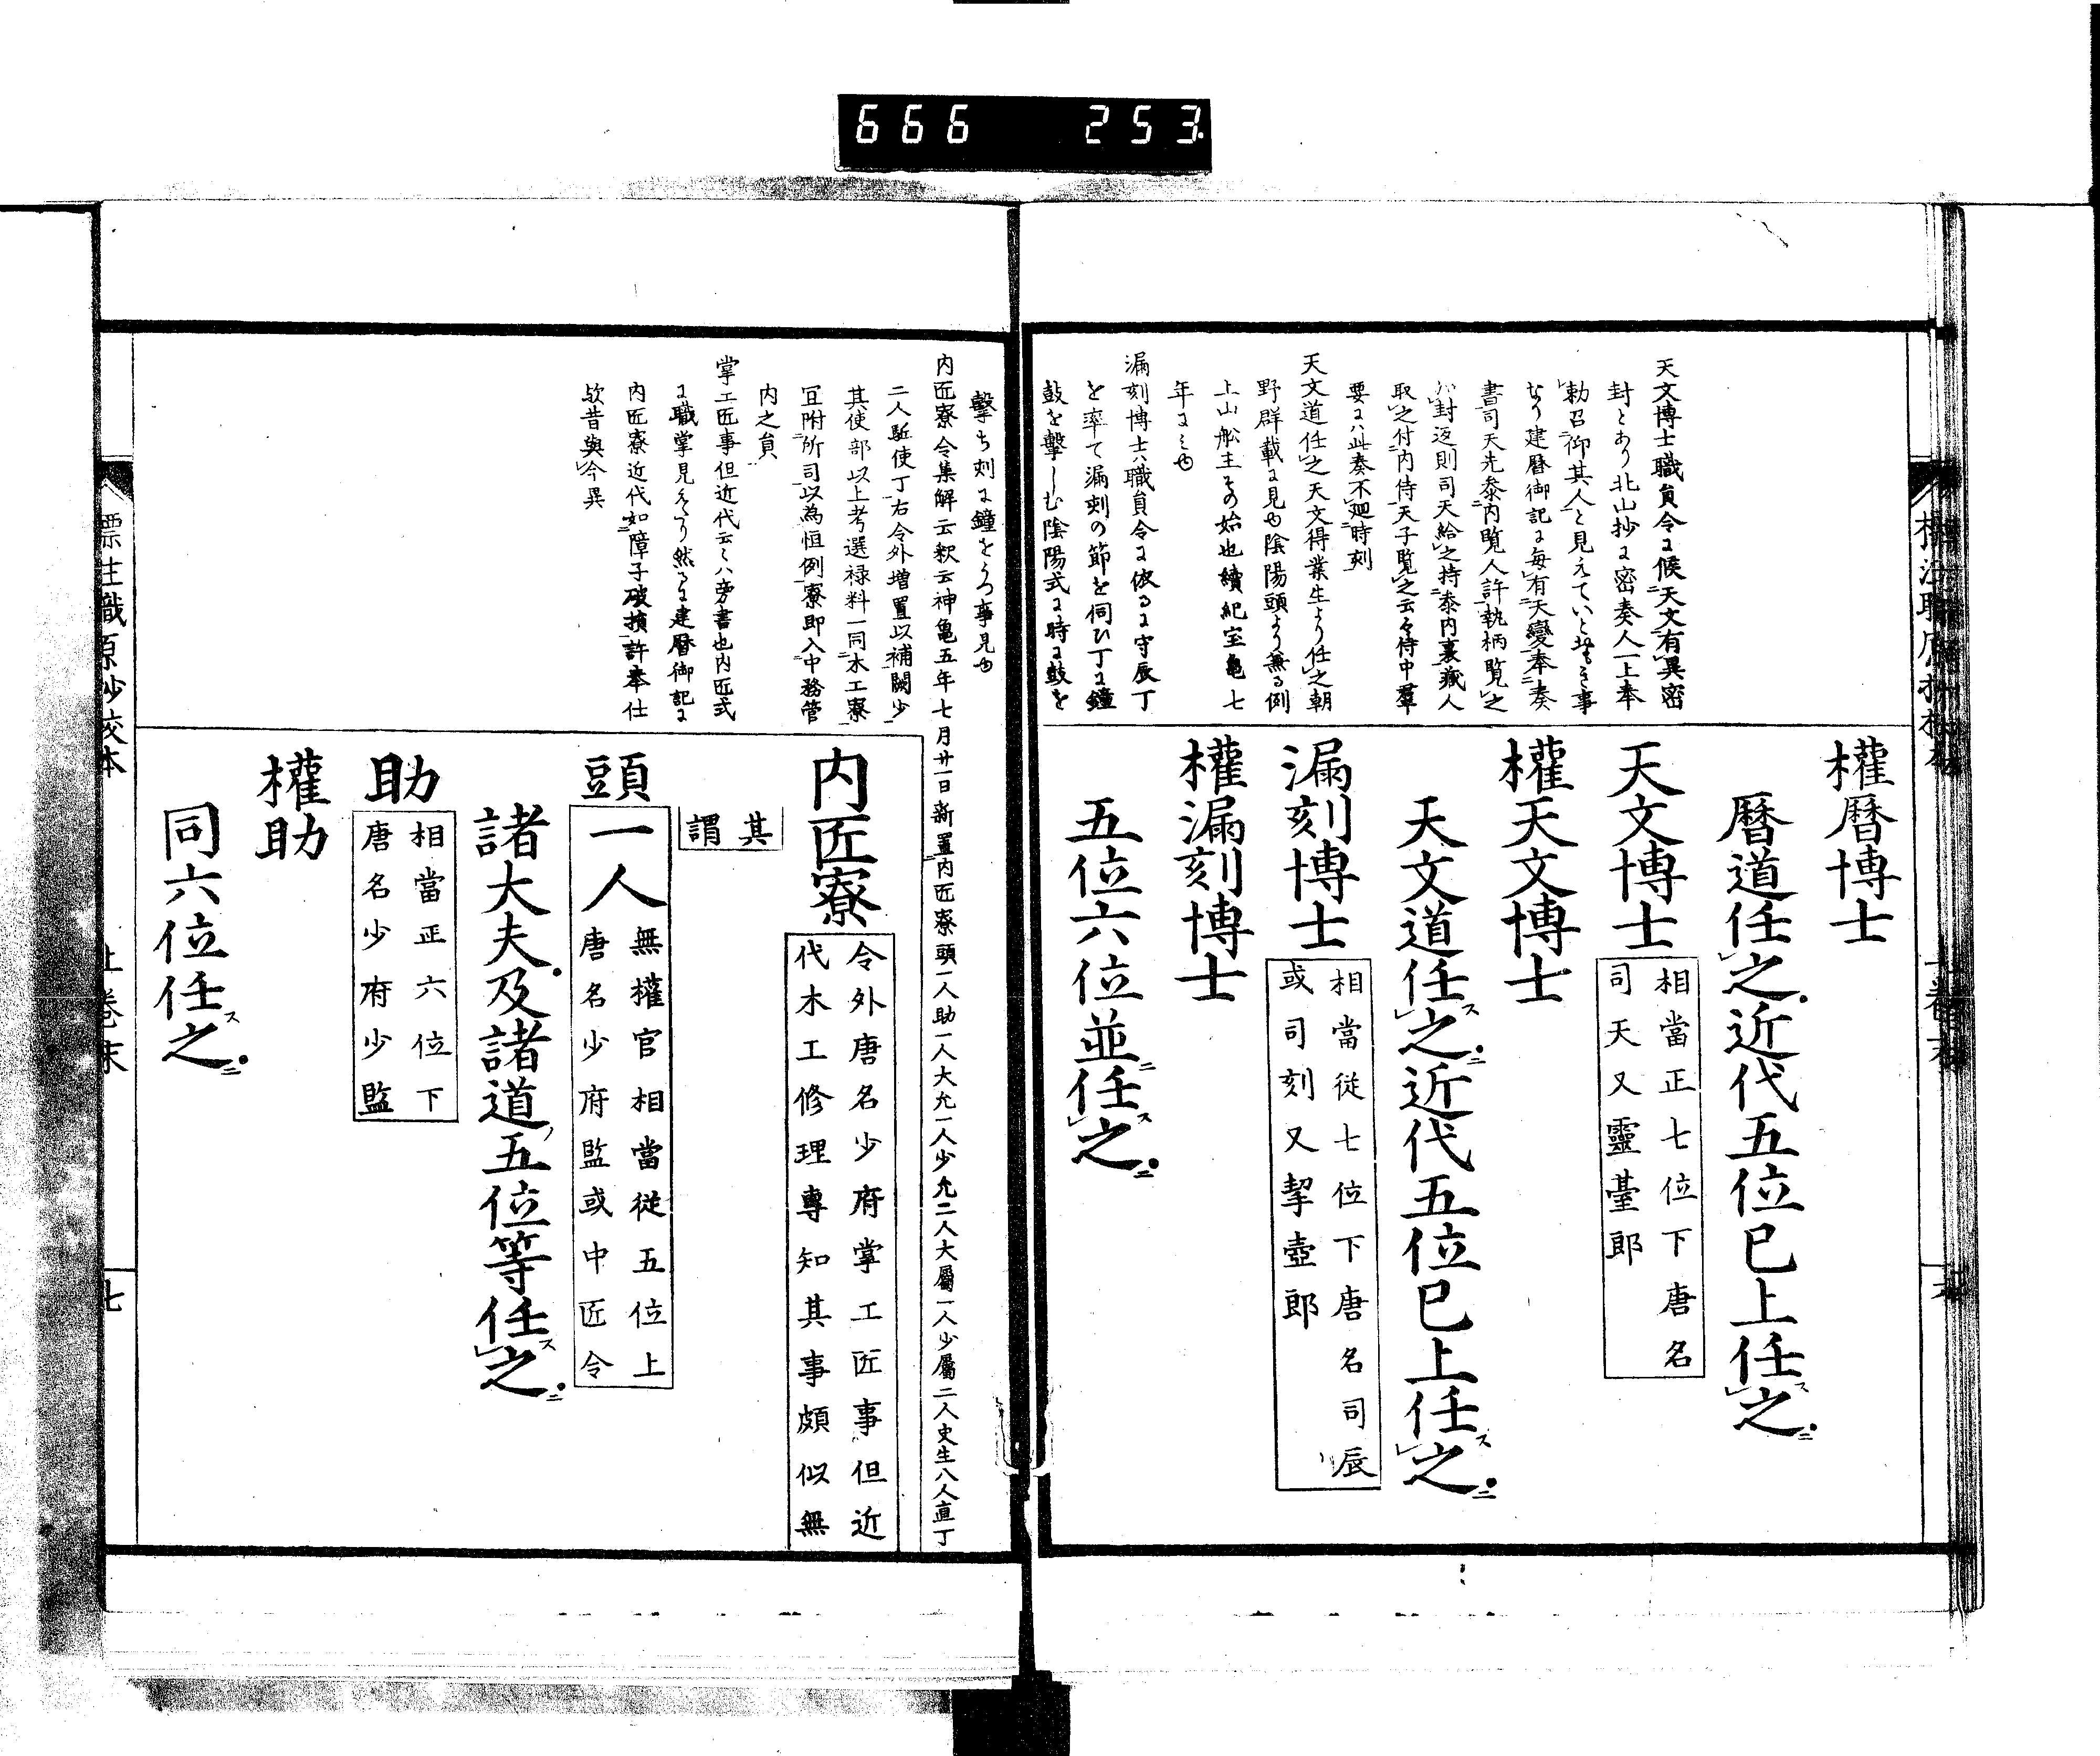 666 253.
天文博士職員令に候天文有異密
封とあり北山抄に密奏人一上奉
勅召仰其人と見えていと堅き事
なり建暦御記に毎有天變奉奏
書司天先奏内覧人許執柄覧之
封返則司天給之持奏内裏蔵人
取之付内侍天子覧之云々侍中羣
要ニハ此奏不廻時刻
天文道任之天文得業生より任之朝
野群載に見ゆ陰陽頭より兼る例
上山舩主その始也續紀宝亀七
年にみゆ
漏刻博士ハ職員令に依るに守辰丁
を率て漏刻の節を伺ひ丁に鐘
鼓を撃しむ陰陽式に時に鼓を
權暦博士
暦道任之近代五位已上任之
天文博士
相當正七位下唐名
司天又靈臺郎
權天文博士
天文道任之近代五位已上任之
漏刻博士
相當従七位下唐名司辰
或司刻又挈壺郎
權漏刻博士
五位六位並任之
撃ち刻に鐘をうつ事見ゆ
内匠寮令集解云釈云神亀五年七月廿一日新置内匠寮頭一人助一人大允一人少允二人大屬一人少屬二人史生八人直丁
二人駈使丁右令外増置以補闕少
其使部以上考選禄料一同木工寮
冝附所司以為恒例寮即入中務管
内之員
掌工匠事但近代云々ハ旁書也内匠式
に職掌見えたり然るに建暦御記に
内匠寮近代如障子破損許奉仕
欤昔與今異
内匠寮
令外唐名少府掌工匠事但近
代木工修理専知其事頗似無
其
謂
頭一人
無權官相當従五位上
唐名少府監或中匠令
諸大夫及諸道五位等任之
助
相當正六位下
唐名少府少監
權助
同六位任之
標注職原抄校本
上巻末
七